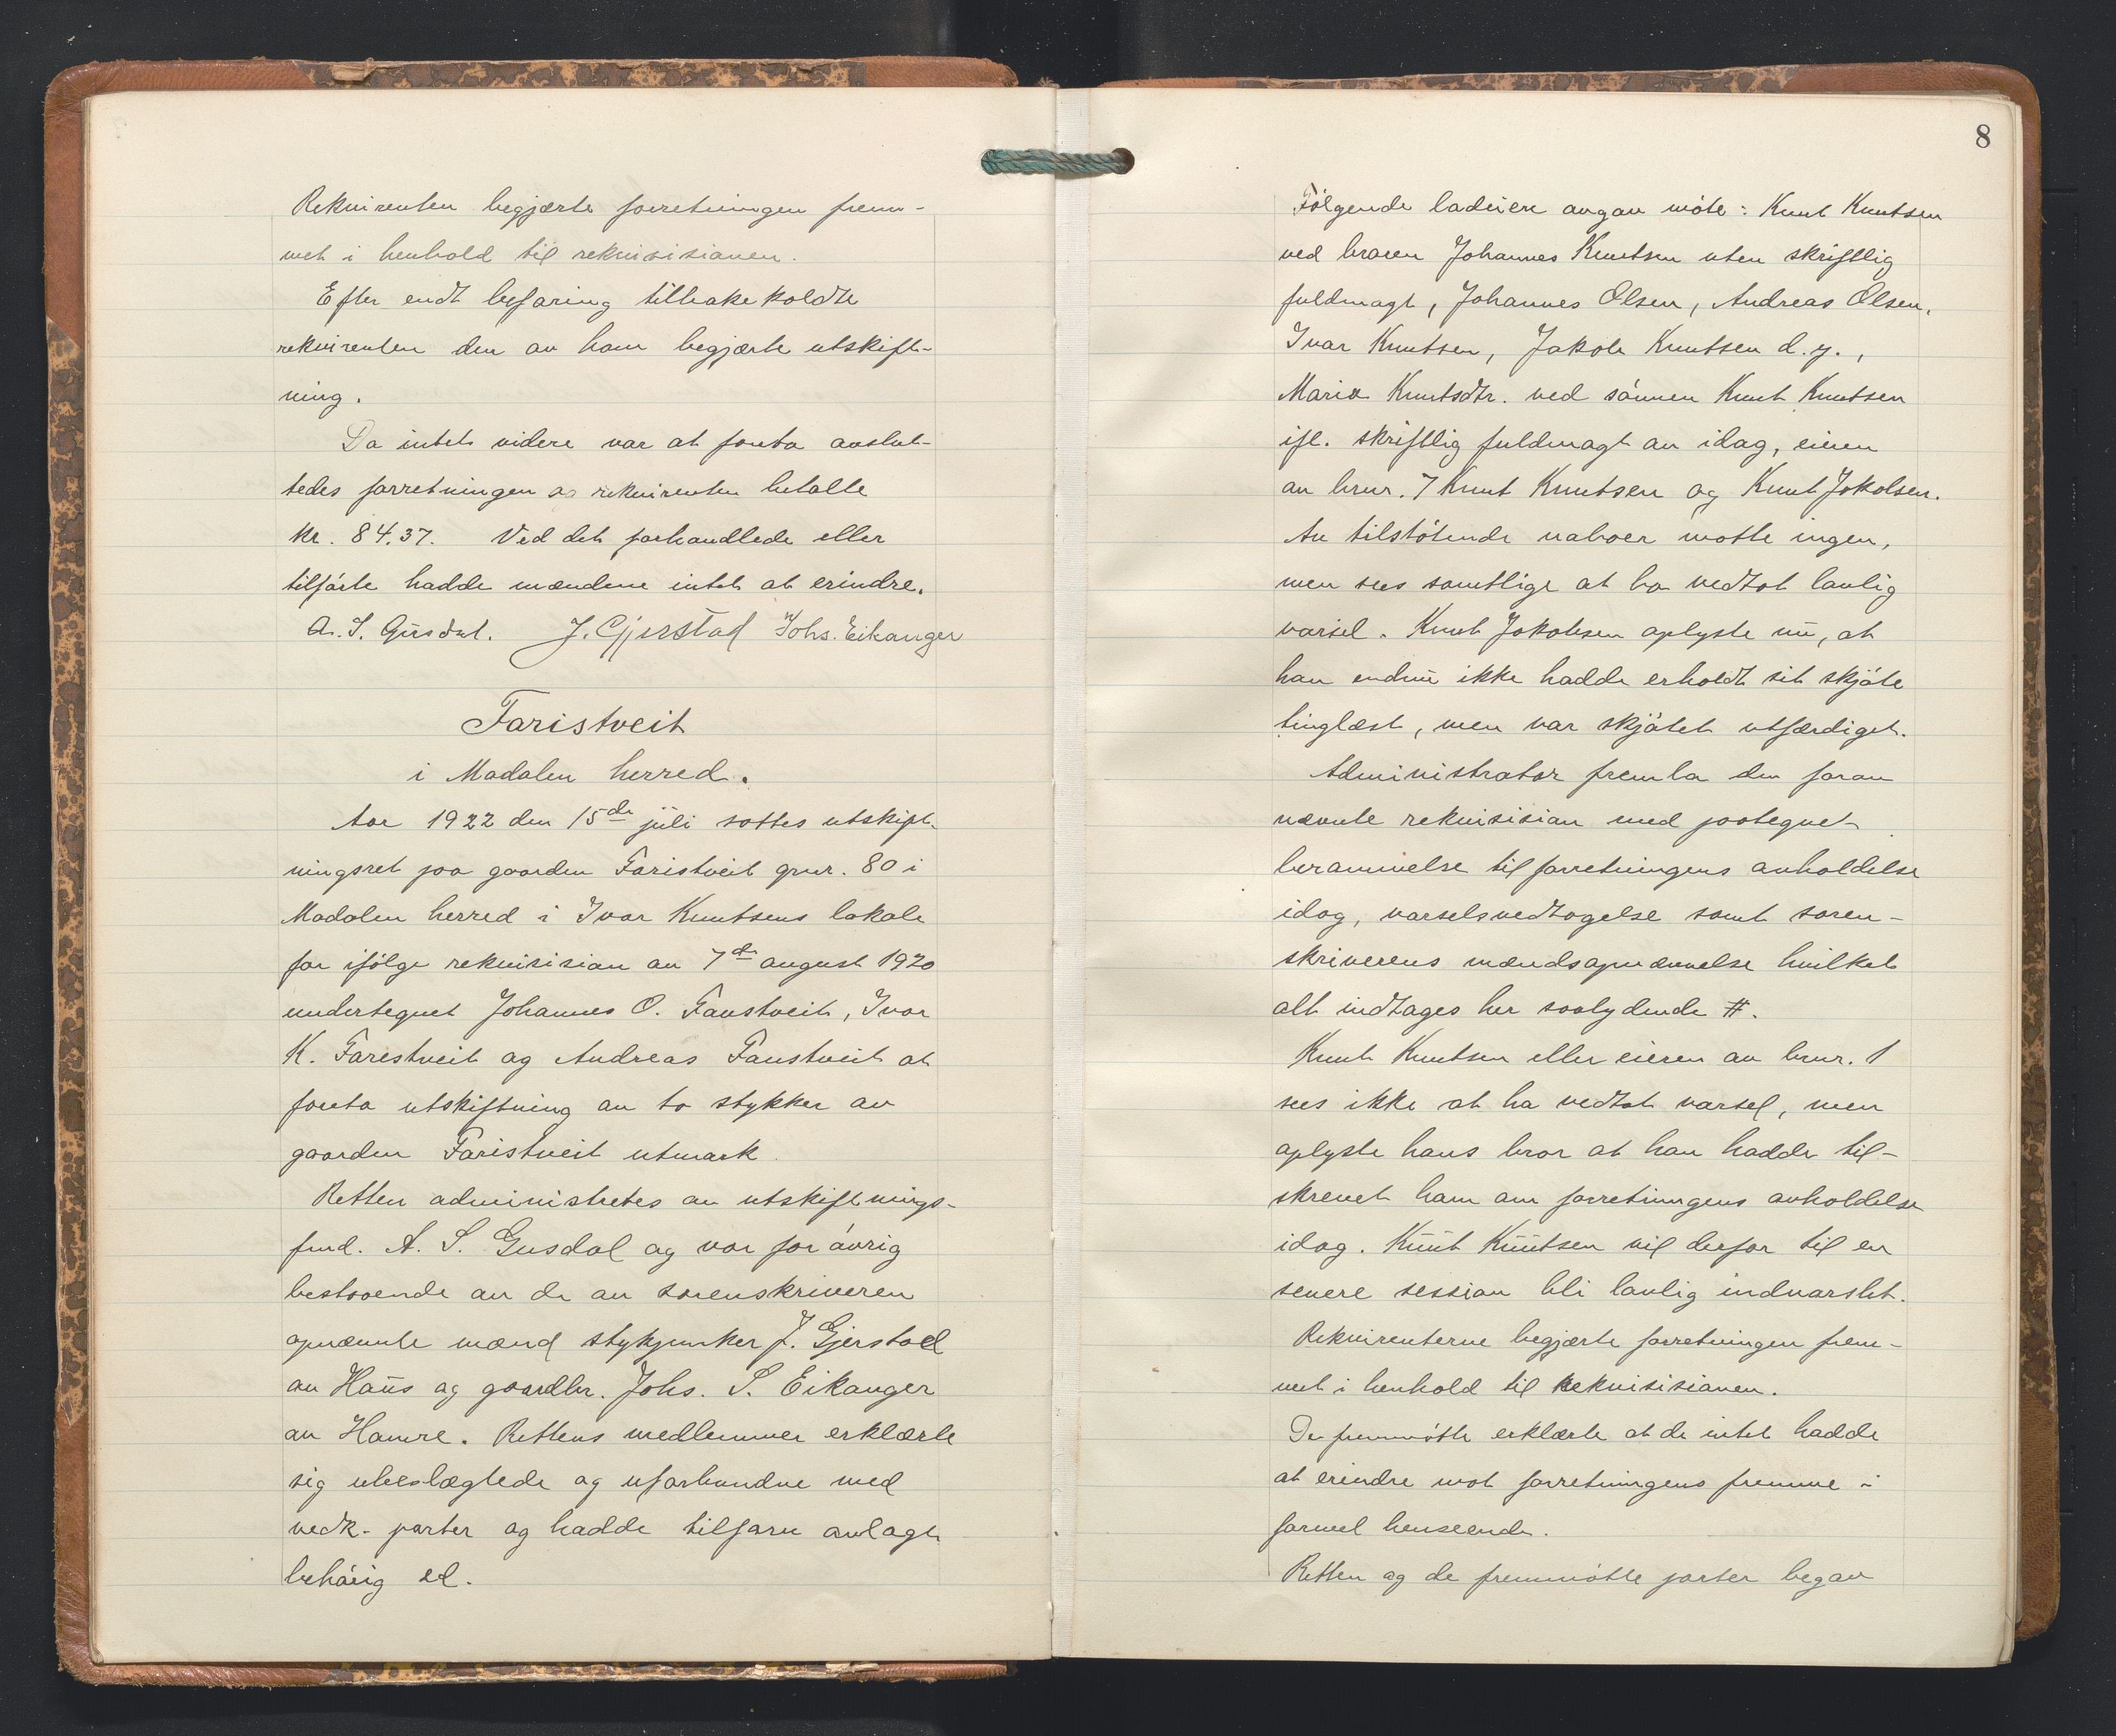 Rekvirenten begjærte forretningen frem-
met i henhold til rekvisisionen.
Efter endt befaring tilbakekoldte
rekvirenten den av ham begjærte utskift-
ning.
Da intet videre var at foreta avslut-
tedes forretningen og rekvirenten betalte
kr. 84.37. Ved det forhandlede eller
tilførte hadde mændene intet at erindre.
A. S. Gusdal. J. Gjerstad Johs. Eikanger
Faristveit
i Modalen herred.
Aar 1922 den 15de juli sattes utskift-
ningsret paa gaarden Faristveit gnr. 80 i
Modalen herred i Ivar Knutsens lokale
for ifølge rekvisision av 7de august 1920
undertegnet Johannes O. Farestveit, Ivar
K. Farestveit og Andreas Farestveit at
foreta utskiftning av to stykker av
gaarden Faristveit utmark.
Retten administretes av utskiftnings-
fmd. A. S. Gusdal og var for øvrig
bestaaende av de av sorenskriveren
opnævnte mænd stykjunker J. Gjerstad
av Haus og gaardbr. Johs. S. Eikanger
av Hamre. Rettens medlemmer erklærte
sig ubeslægtede og uforbundne med
vedk. parter og hadde tilforn avlagt
behørig ed.
8
Følgende lodeiere avgav møte: Knut Knutsen
ved broren Johannes Knutsen uten skriftlig
fuldmagt, Johannes Olsen, Andreas Olsen,
Ivar Knutsen, Jakob Knutsen d.y.,
Maria Knutsdtr. ved sønnen Knut Knutsen
ifl. skriftlig fuldmagt av idag, eieren
av brnr. 7 Knut Knutsen og Knut Jakobsen.
Av tilstøtende naboer møtte ingen,
men sees samtlige at ha vedtat lovlig
varsel. Knut Jakobsen oplyste nu, at
han endnu ikke hadde erholdt sit skjøte
tinglæst, men var skjøtet utfærdiget.
Administrator fremla den foran
nævnte rekvisision med paategnet
berammelse til forretningens avholdelse
idag, varselsvedtagelse samt soren-
skriverens mændsopnævnelse hvilket
alt indtages her saalydende #.
Knut Knutsen eller eieren av brnr. 1
sees ikke at ha vedtat varsel, men
oplyste hans bror at han hadde til-
skrevet ham om forretningens avholdelse
idag. Knut Knutsen vil derfor til en
senere session bli lovlig indvarslet.
Rekvirenterne begjærte forretningen frem-
met i henhold til rekvisisionen.
De fremmøtte erklærte at de intet hadde
at erindre mot forretningens fremme i
formel henseende.
Retten og de fremmøtte parter begav